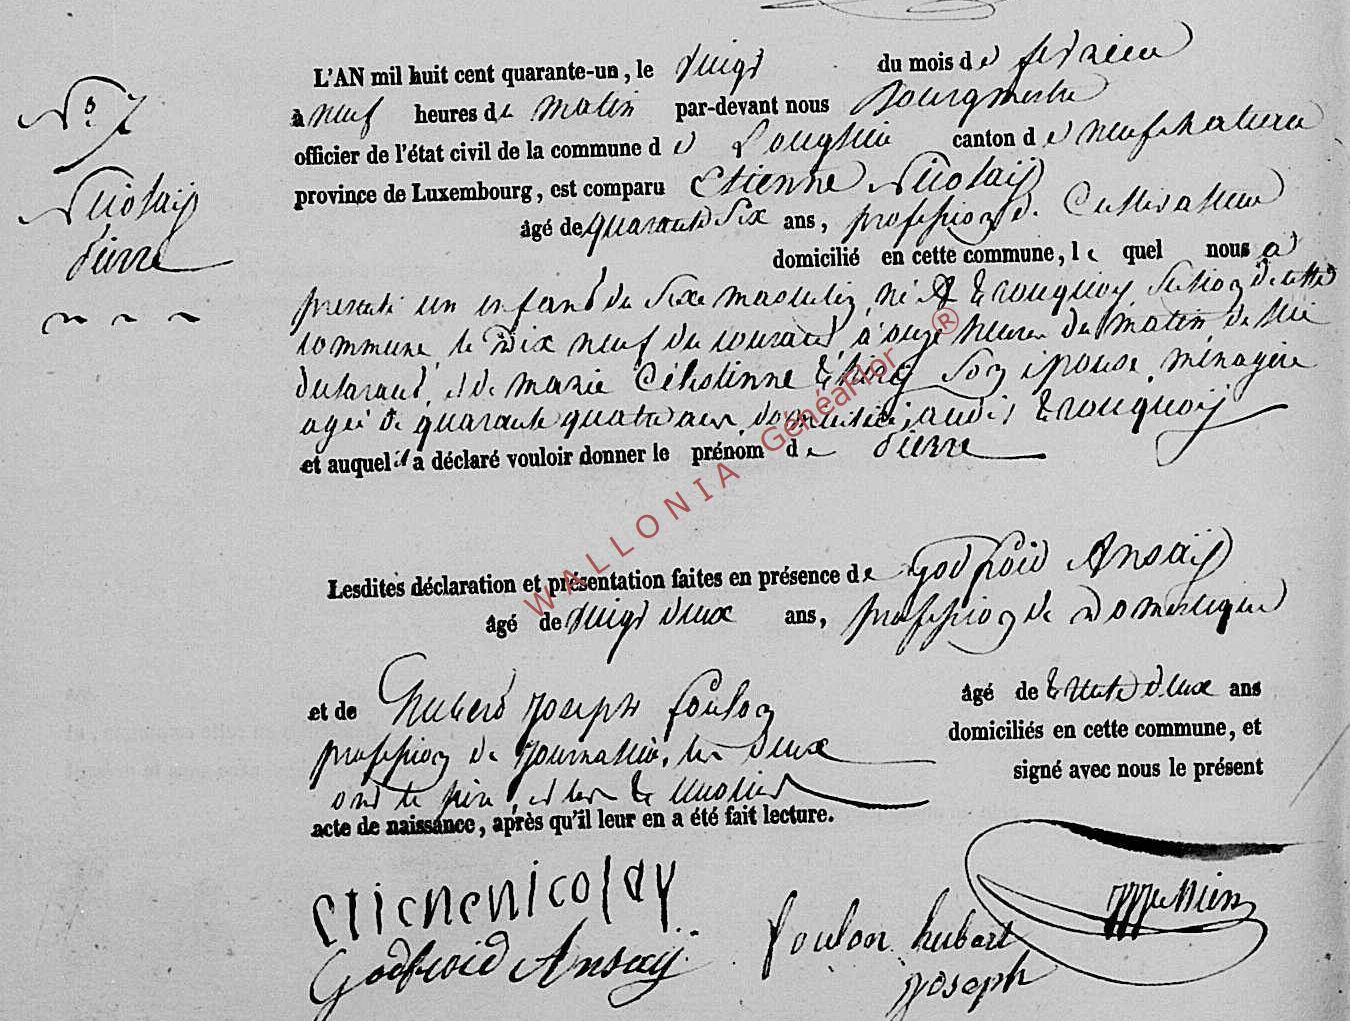 N° 7
Nicolaÿ
Pierre
L'AN mil huit cent quarante-un, le vingt du mois de fevrier
à neuf heures de matin par-devant nous Bourgmestre
officier de l'état civil de la commune de Longlier canton de neufchateau
province de Luxembourg, est comparu Etienne Nicolaÿ
âgé de quarante six ans, profession de Cultivateur
domicilié en cette commune, le quel nous a
presenté un enfant du sexe masculin né à tronquoy section de cette
commune le dix neuf du courant à onze heures du matin de lui
declarant, et de marie Célestinne son epouse, ménagère
agée de quarante quatre ans, domiciliée audit tronquoÿ
et auquel il a déclaré vouloir donner le prénom de Pierre
Lesdites déclaration et présentation faites en présence de Godfroid Ansaÿ
âgé de vingt deux ans, profession de domestique
et de Hubert joseph foulon âgé de trente deux ans
profession de journalier, les deux domiciliés en cette commune, et
ont le père, et les témoins signé avec nous le présent
acte de naissance, après qu'il leur en a été fait lecture.
etienenicolay
Godfroid Ansaÿ
foulon hubert
joseph
WALLONIA GénéaFlor ®